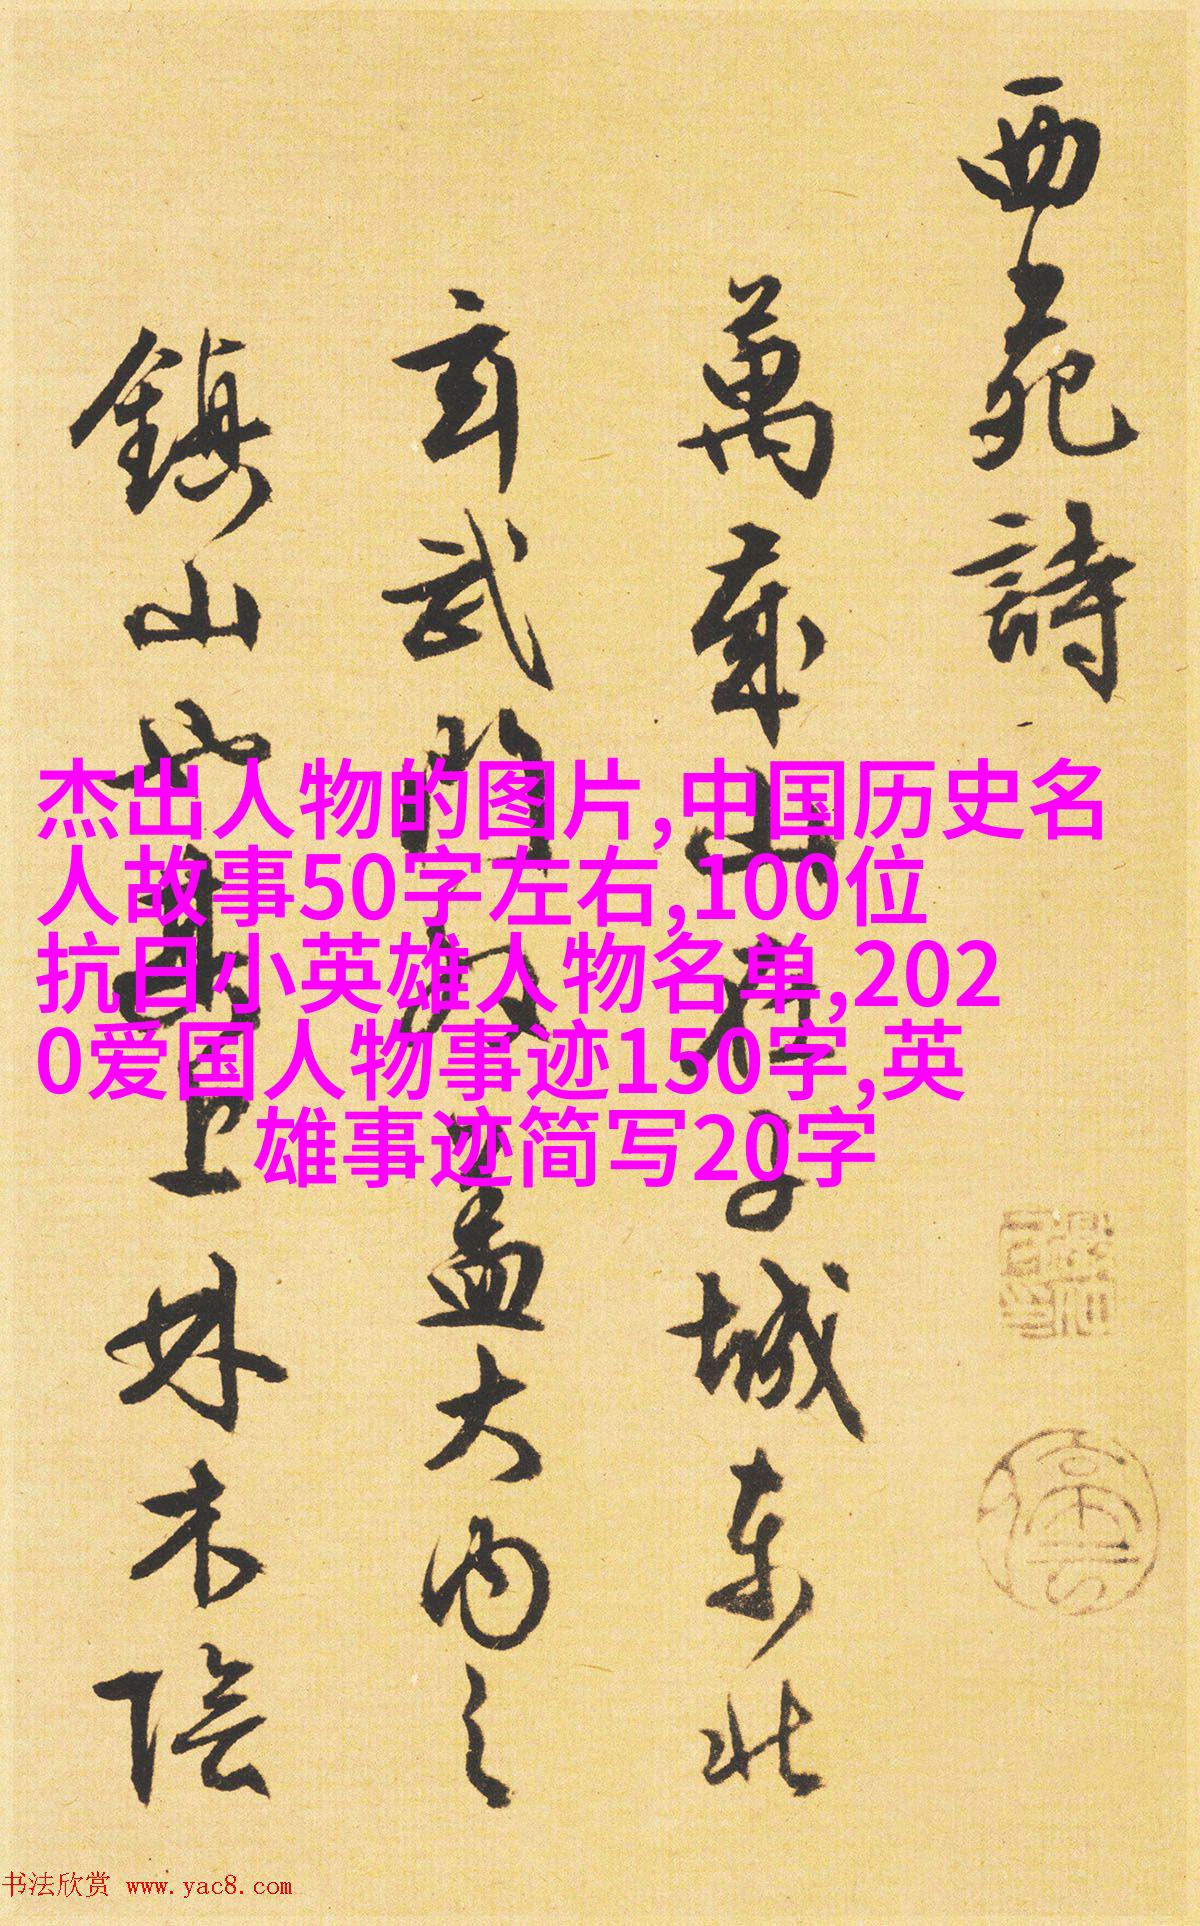 西苑詩
萬歲山在子城東北
玄武門外蓋大內之
鎮山也其上林木陰
杰出人物的图片,中国历史名
人故事50字左右,100位
抗日小英雄人物名单,202
0爱国人物事迹150字,英
雄事迹简写20字
书法欣赏 www.yac8.com